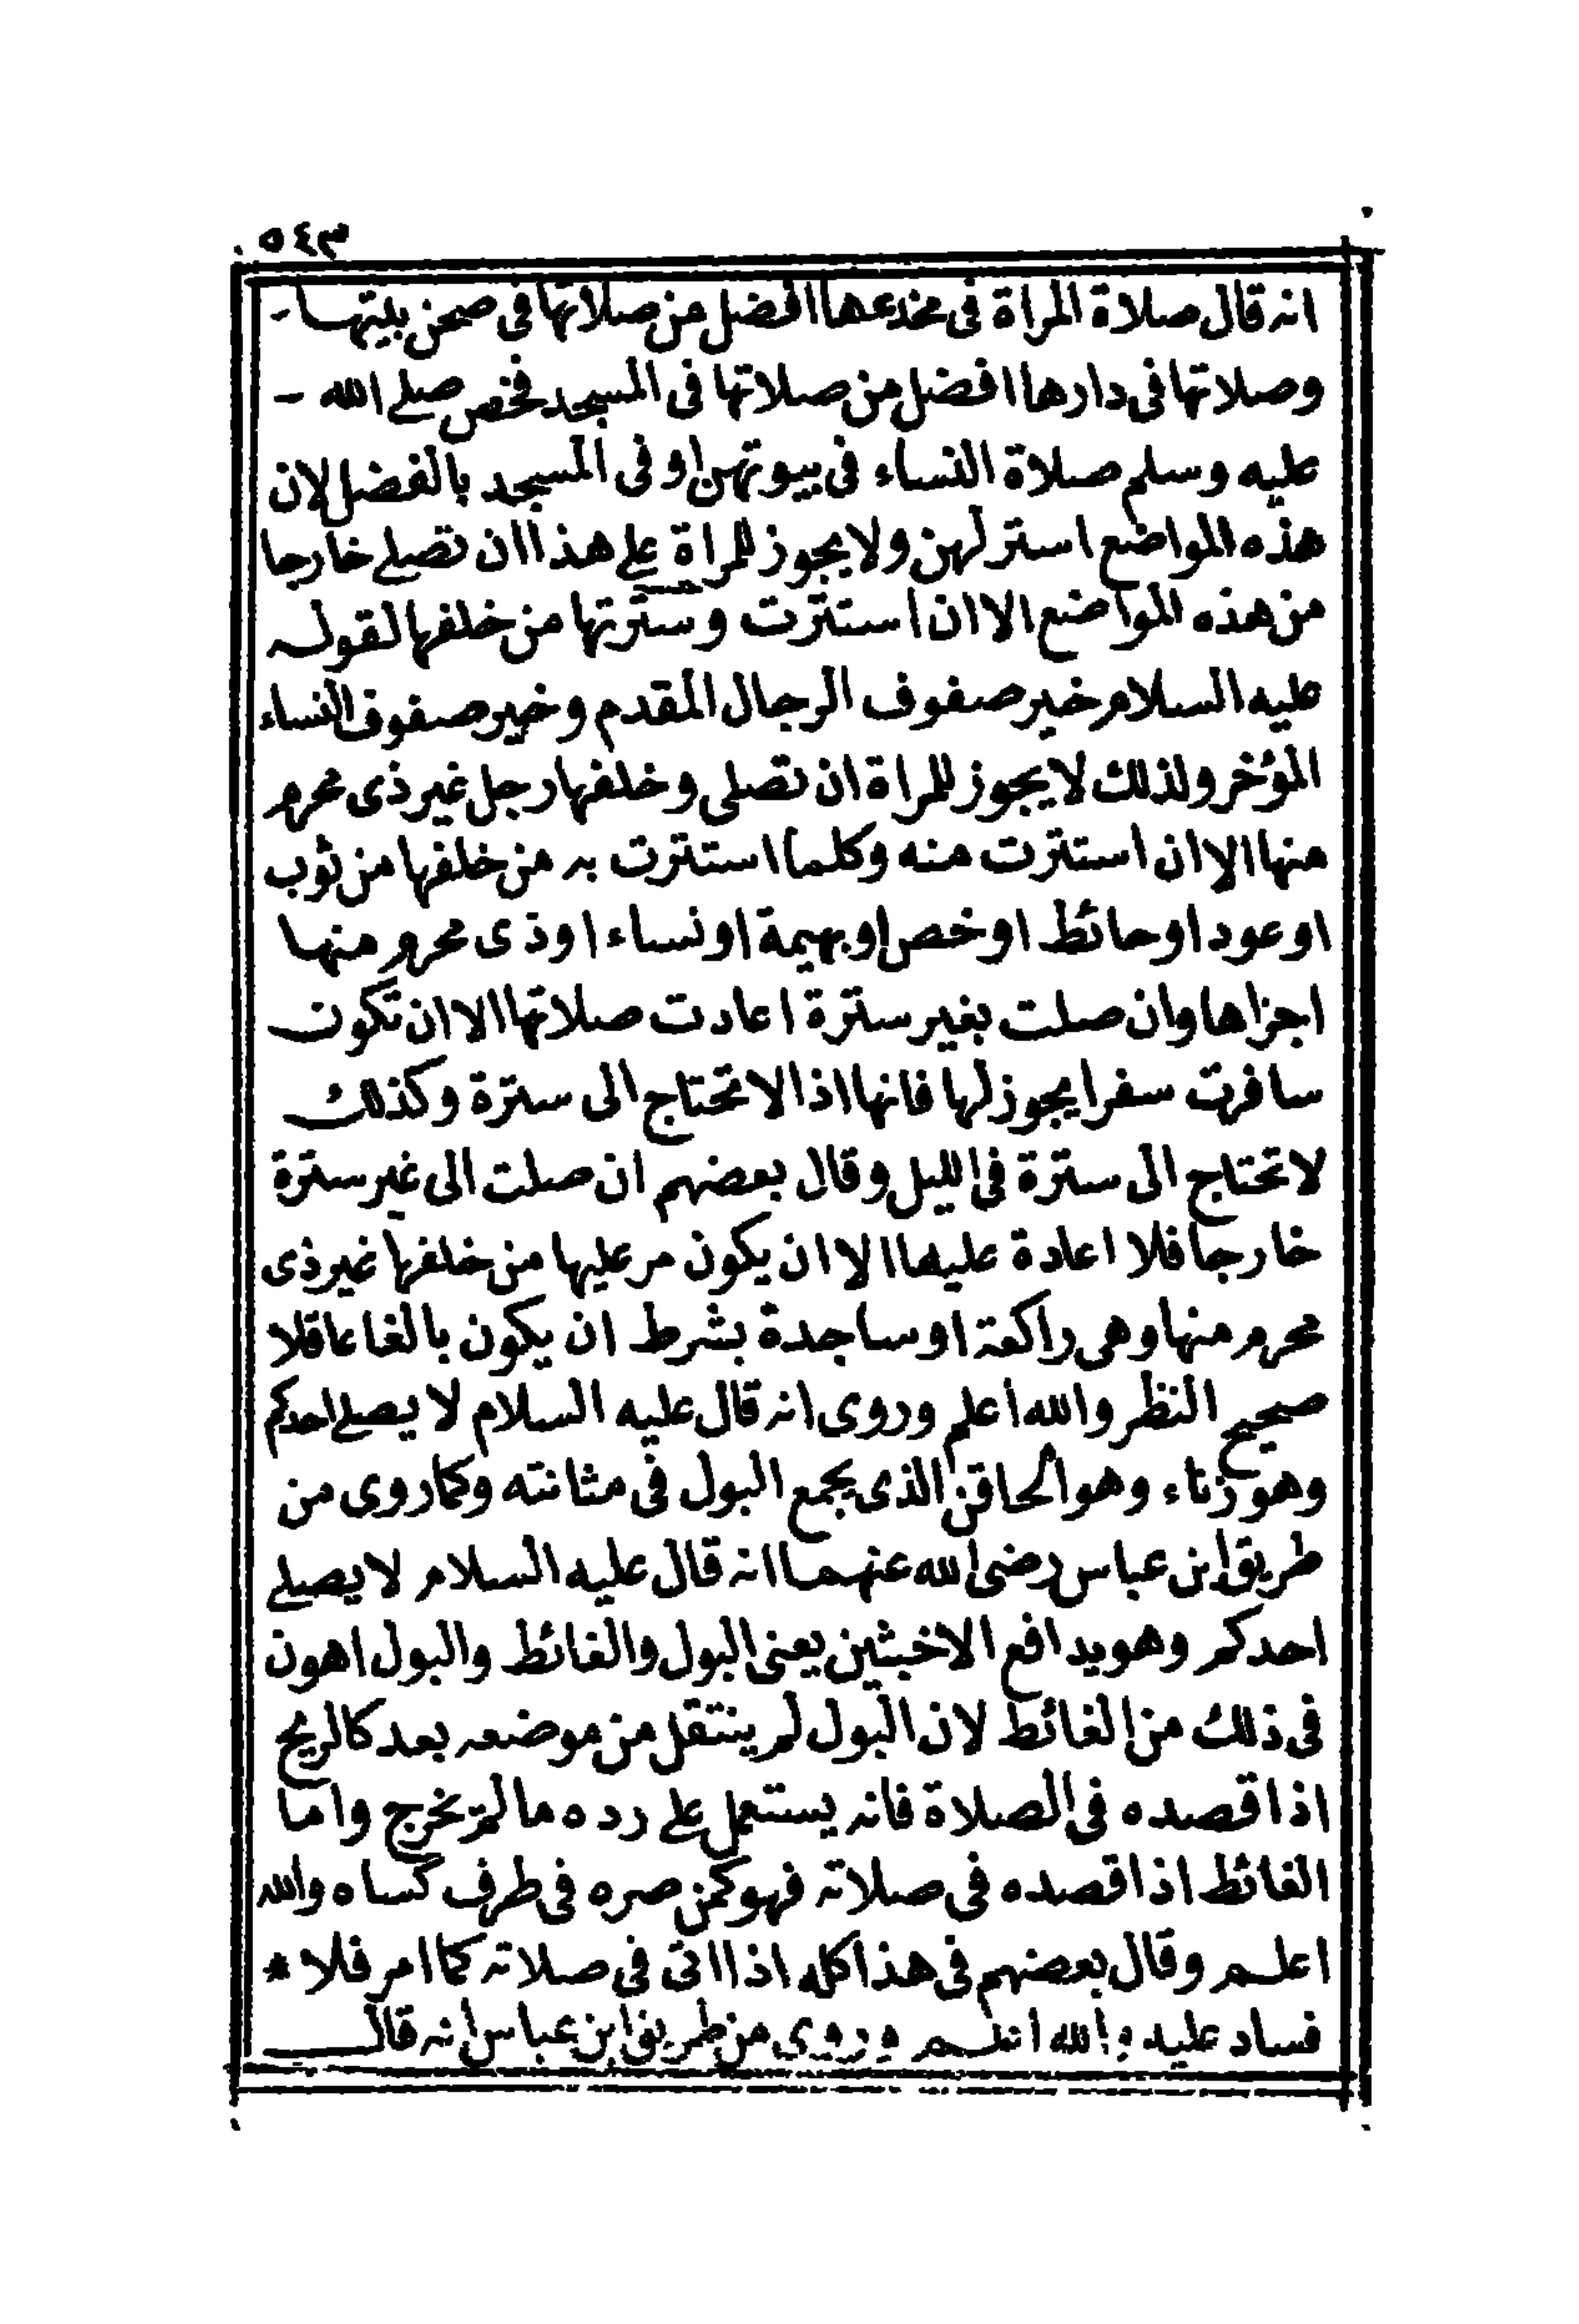 ٥٤٣
انه قال صلاة المراة في مخدعها افضل من صلاتها في صحن بيتها -
وصلاتها في دارها افضل من صلاتها في المسجد فخص صلى الله -
عليه وسلم صلاة النساء في بيوتهن او في المسجد بالفضل لان
هذه المواضع استر لهن ولا يجوز للمراة على هذا ان تصلى خارجا
من هذه المواضع الا ان استترت وسترتها من خلفها لقوله
عليه السلام خير صفوف الرجال المقدم وخير صفوف النساء
المؤخر ولذلك لا يجوز للمراة ان تصلى وخلفها رجل غير ذى محرم
منها الا ان استترت منه وكلما استترت به من خلفها من ثوب
او عود او حائط او خص او بهيمة او نساء او ذى محرم منها
اجزاها وان صلت بغير سترة اعادت صلاتها الا ان تكون
سافرت سفرا يجوز لها فانها اذا لا تحتاج الى سترة وكذلك
لا تحتاج الى سترة في الليل وقال بعضهم ان صلت الى غير سترة
خارجا فلا اعادة عليها الا ان يكون مر عليها من خلفها غير ذى
محرم منها وهى راكعة او ساجدة بشرط ان يكون بالغا عاقلا
صحيح النظر والله اعلم وروى انه قال عليه السلام لا يصلى احدكم
وهو زناء وهو الحاقن الذى يجمع البول في مثانته وكما روى من
طريق ابن عباس رضى الله عنهما انه قال عليه السلام لا يصلى
احدكم وهو يدافع الاخبثين يعنى البول والغائط والبول اهون
في ذلك من الغائط لان البول لم ينتقل من موضعه بعد كالريح
اذا قصده في الصلاة فانه يستعمل على رده ما لم يخرج واما
الغائط اذا قصده في صلاته فهو كمن صره في طرف كساه والله
اعلم وقال بعضهم في هذا كله اذا اتى في صلاته كما امر فلا *
فساد عليه والله اعلم وروى من طريق ابن عباس انه قال